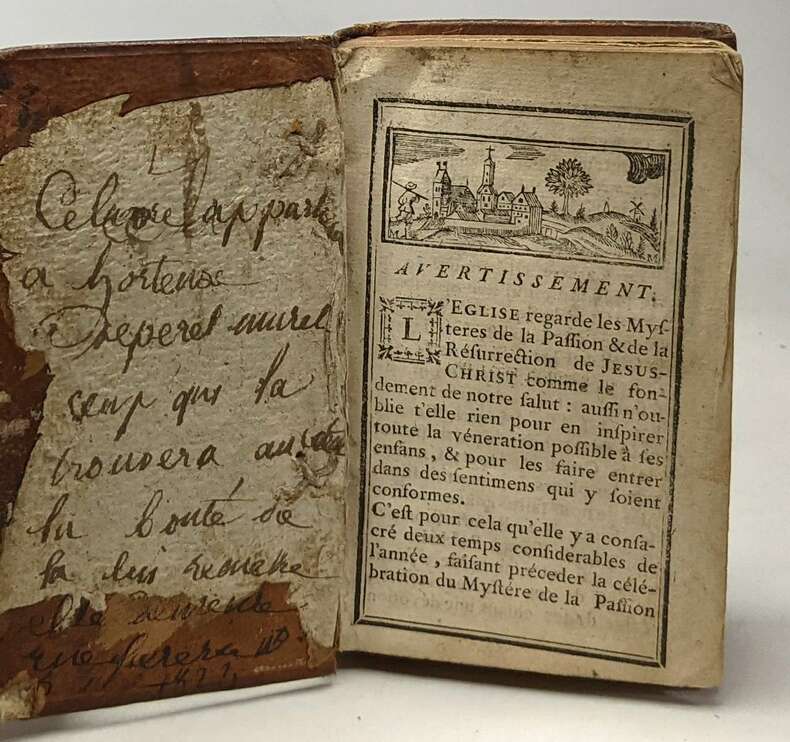 a hortense
ceux qui la
trouvera
la bonté de
la lui
elle demeure
rue
AVERTISSEMENT.
L'EGLISE regarde les Myſ-
teres de la Paſſion & de la
Réſurrection de JESUS-
CHRIST comme le fon-
dement de notre ſalut : auſſi n'ou-
blie t'elle rien pour en inſpirer
toute la véneration poſſible à ſes
enfans, & pour les faire entrer
dans des ſentimens qui y ſoient
conformes.
C'eſt pour cela qu'elle y a conſa-
cré deux temps conſiderables de
l'année, faiſant préceder la célé-
bration du Myſtére de la Paſſion